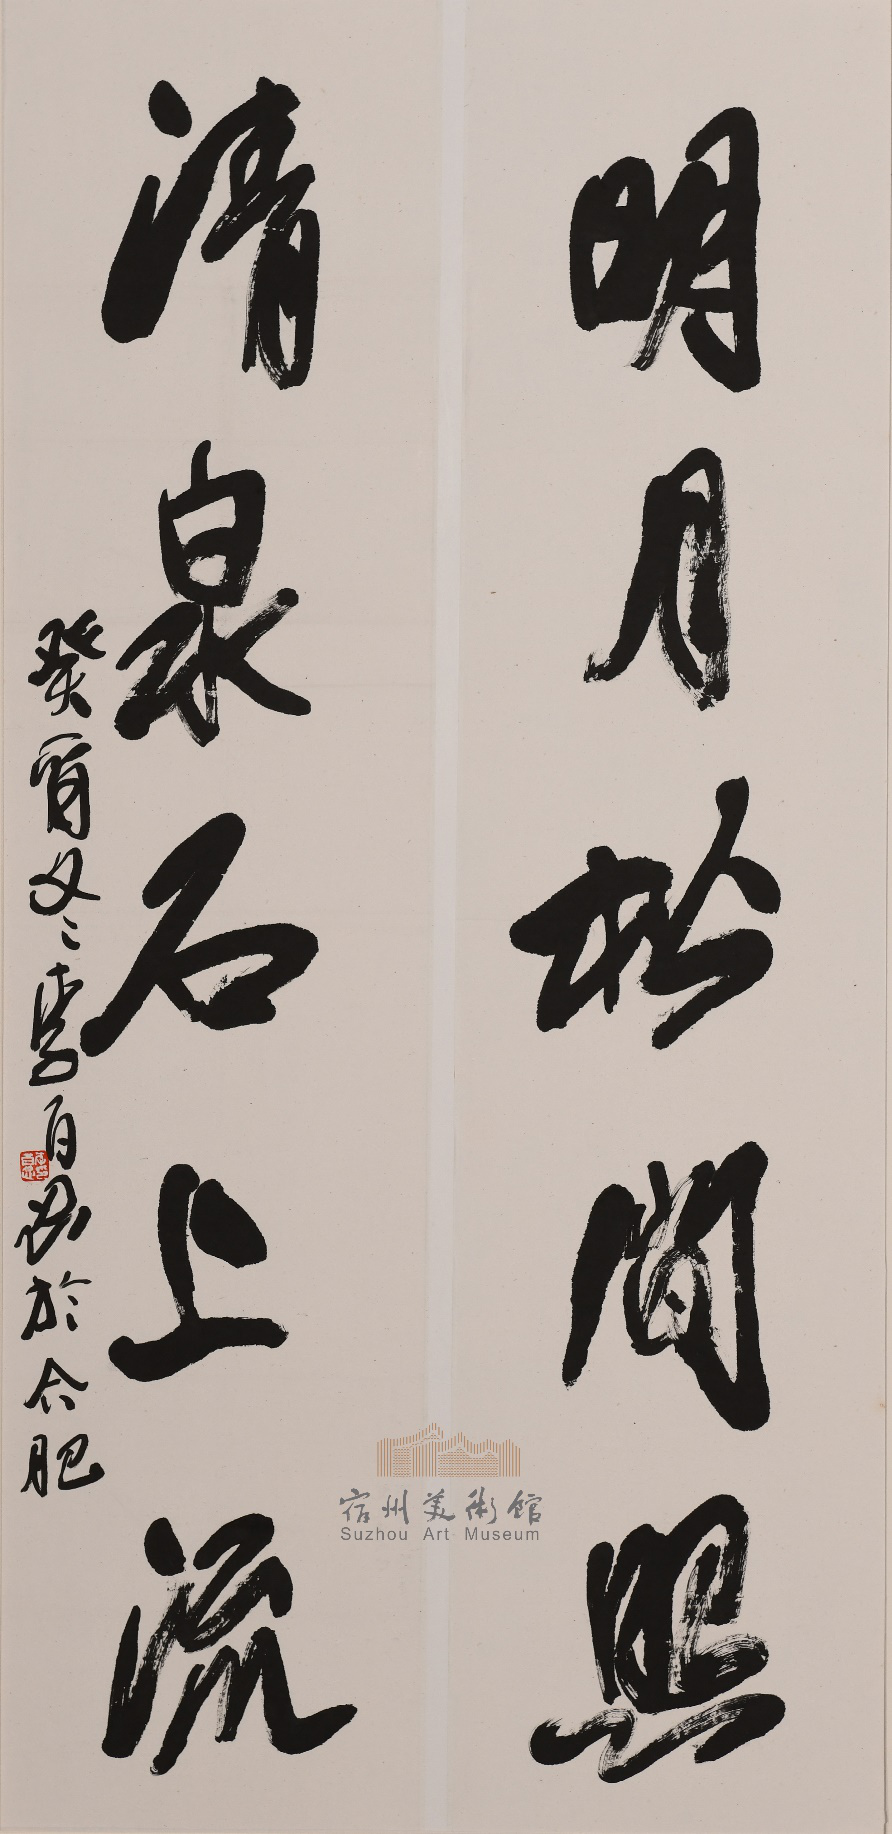 明月松間照
清泉石上流
癸卯冬李百忍於合肥
宿州美術館
Suzhou Art Museum